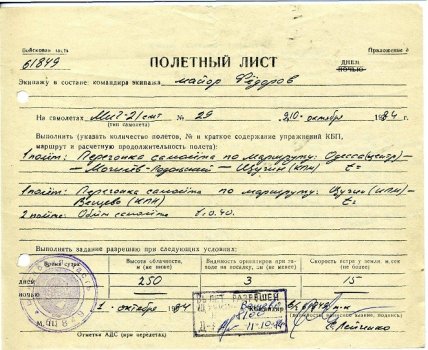 Войсковая часть
Приложение 6
61849
ПОЛЕТНЫЙ ЛИСТ
ДНЕМ
НОЧЬЮ
Экипажу в составе: командира экипажа майор Фёдоров
На самолетах МиГ-21 смт № 29 9/10 октября 1984 г.
(тип самолета)
Выполнить (указать количество полетов, № и краткое содержание упражнений КБП,
маршрут и расчетную продолжительность полета):
1 полёт: Перегонка самолёта по маршруту: Одесса (центр) –
– Могилёв-Подольский – (КПМ) t=
1 полёт: Перегонка самолёта по маршруту: (ИПМ) –
Вещево (КПМ) t=
2 полёта: Облёт самолёта 1.0.40.
Выполнять задание разрешаю при следующих условиях:
Время суток
Высота облачности, м (не менее)
Видимость ориентиров при заходе на посадку, км (не менее)
Скорость ветра у земли, м/сек (не более)
днем
250
3
15
ночью
1 октября 1984
Вещево
Командир
(подпись)
Отметки АДС (при перелетах)